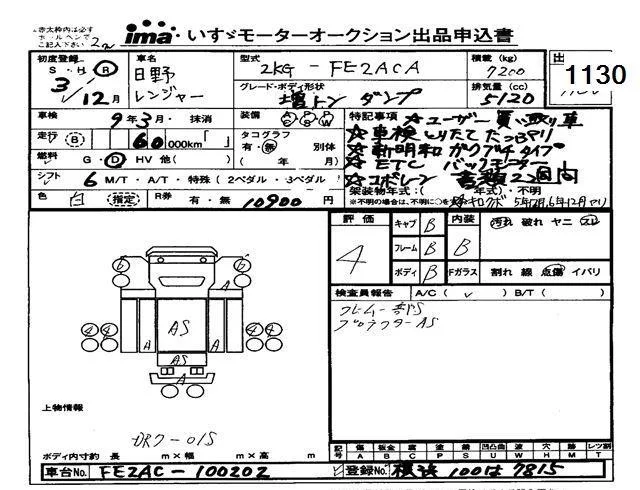 赤太枠内は必ず
ボールペンで
ご記入下さい
ima・いすゞモーターオークション出品申込書
初度登録 S・H・R 3/12月
車名 日野 レンジャー
型式 2KG-FE2ACA
積載(kg) 7200
グレード・ボディ形状 増トン ダンプ
排気量(cc) 5120
1130
車検 9年3月・抹消
装備
走行 B 60,000km「 」
タコグラフ 有・無 別体
( 年 月)
燃料 G・D・HV 他( )
シフト 6 M/T・A/T・特殊(2ペダル・3ペダル)
色 白(指定) R券 有・無 10900円
特記事項 ☆ユーザー買い取り車
☆車検とりたてたっぷり
☆新明和 ガッツチ タイプ
☆ETC バックモニター
☆コボレン
架装物年式:( 年式)・不明
評価 4
キャブ B
フレーム B
ボディ B
内装 B
汚れ 破れ ヤニ スレ
Fガラス 割れ 線 点傷 イバリ
検査員報告 A/C( ✓ ) B/T( )
フレーム一部S
プロテクターAS
6 6
A A
AS
4 4 4 4
A A
AS
A
上物情報
DR7-01S
ボディ内寸約 長 m×幅 m×高 m
記号 傷 板金 腐 塗 錆 凹凸曲 波 穴 跡 レツ割
A B C P S U W H M T
車台No. FE2AC-100202
登録No. 横浜 100は7815